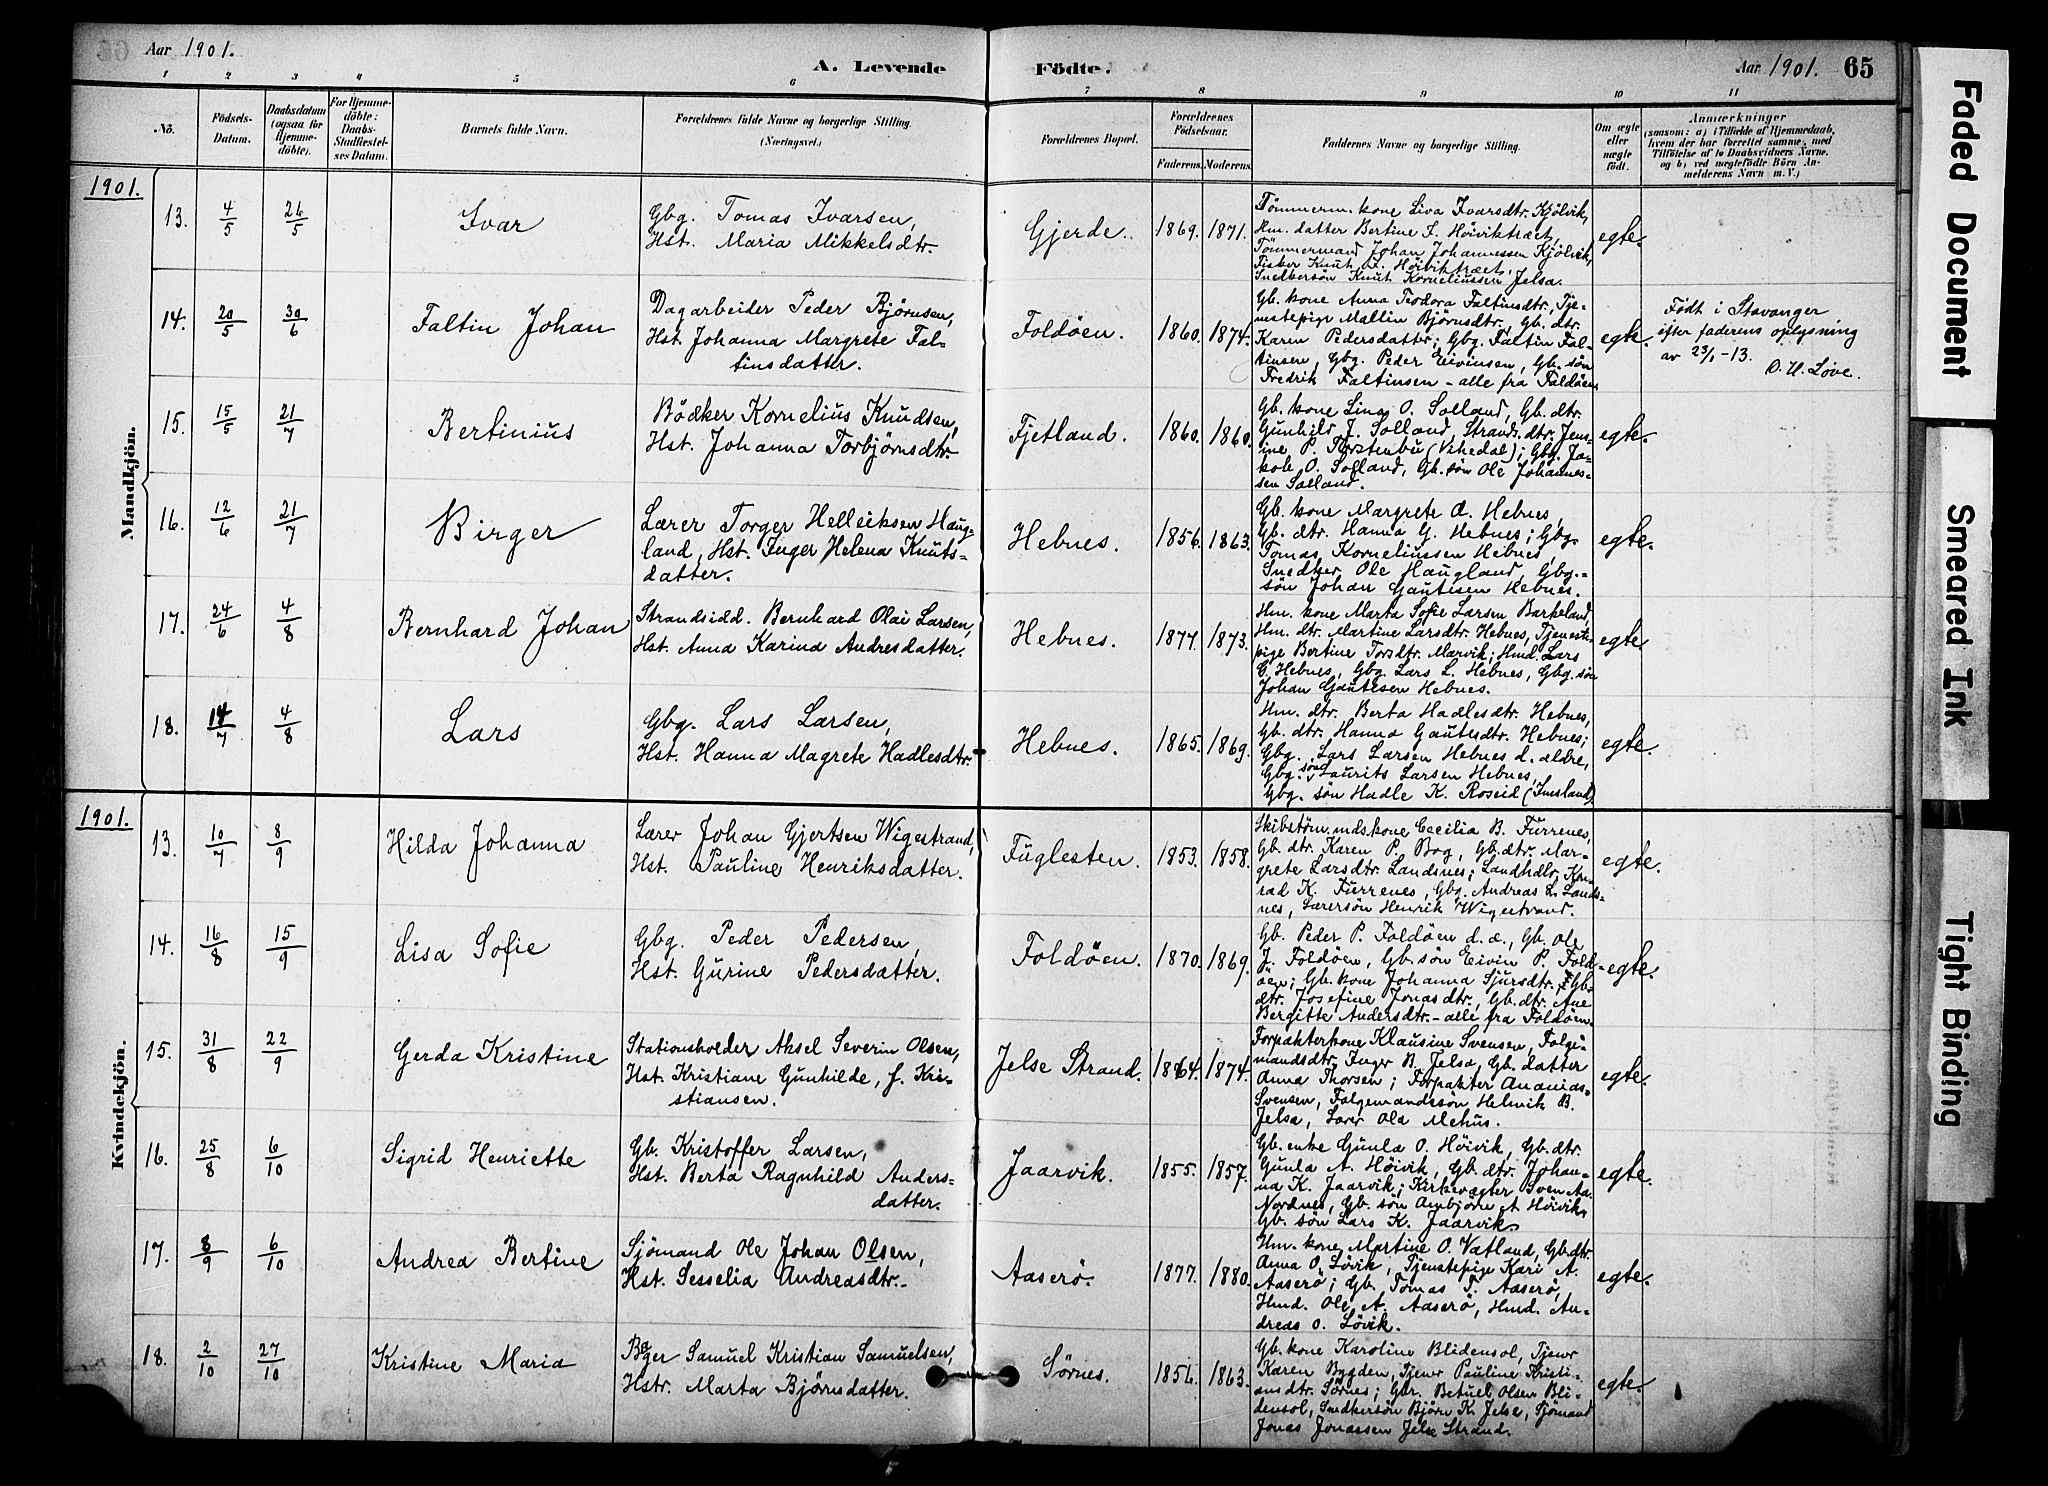 Aar 1901.
A. Levende Födte.
Aar 1901. 65
1 2 3 4 5 6 7 8 9 10 11
No.
Födsels-Datum.
Daabsdatum (ogsaa for Hjemme-döbte).
For Hjemme-döbte: Daabs-Stadfæstel-ses Datum.
Barnets fulde Navn.
Forældrenes fulde Navne og borgerlige Stilling. (Næringsvei.)
Forældrenes Bopæl.
Forældrenes Födselsaar.
Faderens. Moderens.
Faddernes Navne og borgerlige Stilling.
Om ægte eller uægte födt.
Anmærkninger
(saasom: a) i Tilfælde af Hjemmedaab,
hvem der har forrettet samme, med
Tilföielse af to Daabsvidners Navne.
og b) ved uægtefödte Börn An-
melderens Navn m. V.)
1901.
Mandkjön.
13. 4/5 26/5 Ivar
Gbg. Tomas Ivarsen,
Hst. Maria Mikkelsdtr.
Gjerde. 1869. 1871.
Tömmerm. kone Liva Ivarsdtr. Kjölvik,
Hm. datter Bertine T. Höiviktræet,
Tömmermand Johan Johannessen Kjölvik,
Fisker Knut T. Höiviktræet,
Snedkersön Knut Korneliussen Jelsa.
egte.
14. 20/5 30/6 Faltin Johan
Dagarbeider Peder Bjørnsen,
Hst. Johanna Margrete Fal-
tinsdatter.
Foldöen. 1860. 1874.
Gb. kone Anna Teodora Faltinsdtr, Tje-
nstepige Mallin Bjørnsdtr, Gb. dtr.
Karen Pedersdatter; Gbg. Faltin Fal-
tinsen, Gbg. Peder Eivinsen, Gb. sön
Fredrik Faltinsen - alle fra Foldöen
egte.
Født i Stavanger
efter faderens oplysning
av 23/1-13.
O. H. Løve.
15. 15/5 21/7 Bertinius
Bödker Kornelius Knudsen,
Hst. Johanna Torbjørnsdtr.
Fjetland. 1860. 1860.
Gb. kone Lina O. Solland, Gb. dtr.
Gunhild J. Solland, Strands. dtr. Jens-
ine P. (Vikedal); Gbg. Ja-
kob O. Solland, Gb. sön Ole Johannes-
sen Solland.
egte.
16. 12/6 21/7 Birger
Lærer Torger Helleiksen Haug-
land, Hst. Inger Helena Knuts-
datter.
Hebnes. 1856. 1863.
Gb. kone Margrete A. Hebnes,
Gb. dtr. Hanna G. Hebnes; Gbg.
Tomas Korneliussen Hebnes
Snedker Ole Haugland, Gbg.-
sön Johan Gautesen Hebnes.
egte.
17. 24/6 4/8 Bernhard Johan
Strandsidd. Bernhard Olai Larsen,
Hst. Anna Karina Andresdatter.
Hebnes. 1877. 1873.
Hm. kone Marta Sofie Larsen Barkeland,
Hm. dtr. Martine Larsdtr. Hebnes, Tjeneste-
pige Bertine Torsdtr. Marvik; Hmd. Lars
G. Hebnes, Gbg. Lars L. Hebnes, Gbg. sön
Johan Gautesen Hebnes.
egte.
18. 14/7 4/8 Lars
Gbg. Lars Larsen,
Hst. Hanna Magrete Hadlesdtr.
Hebnes. 1865. 1869.
Hm. dtr. Berta Hadlesdtr. Hebnes,
Gb. dtr. Hanna Gautesdtr. Hebnes;
Gbg. Lars Larsen Hebnes d. ældre,
Gbg. sön Laurits Larsen Hebnes,
Gbg. sön Hadle K. Roseid (Imsland)
egte.
1901.
Kvindekjön.
13. 10/7 8/9 Hilda Johanna
Lærer Johan Gjertsen Wigestrand,
Hst. Pauline Henriksdatter.
Fuglesten. 1853. 1858.
Skibstöm. mds. kone Cecilia B. Furrenes,
Gb. dtr. Karen P. Bog, Gb. dtr. Mar-
grete Larsdtr. Landsnes; Landhdlr. Kon-
rad K. Furrenes, Gbg. Andreas L. Lands-
nes, Lærersön Henrik Wigestrand.
egte.
14. 16/8 15/9 Lisa Sofie
Gbg. Peder Pedersen,
Hst. Gurine Pedersdatter.
Foldöen. 1870. 1869.
Gb. Peder P. Foldöen d. æ., Gb. Ole
J. Foldöen, Gb. sön Eivin P. Fold-
öen; Gb. kone Johanna Sjursdtr, Gb.
dtr. Josefine Jonasdtr., Gb. dtr. Ane
Bergitte Andersdtr. - alle fra Foldöen.
egte.
15. 31/8 22/9 Gerda Kristine
Stationsholder Aksel Severin Olsen,
Hst. Kristiane Gunhilde, f. Kri-
stiansen.
Jelse Strand. 1864. 1874.
Forpakterkone Klausine Svensen, Folge-
mandsdtr. Inger B. Jelsa, Gb. datter
Anna Thorsen; Forpakter Ananias
Svensen, Folgemandssön Helmik B.
Jelsa, Lærer Ola Mehus.
egte.
16. 25/8 6/10 Sigrid Henriette
Gb. Kristoffer Larsen,
Hst. Berta Ragnhild Anders-
datter.
Jaarvik. 1855. 1857.
Gb. enke Gunla O. Höivik, Gb. dtr.
Gunla A. Höivik, Gb. dtr. Johan-
na K. Jaarvik; Kirkevægter Sven Aa.
Nordnes, Gb. sön Arnbjørn A. Höivik,
Gb. sön Lars K. Jaarvik.
egte.
17. 8/9 6/10 Andrea Bertine
Sjömand Ole Johan Olsen,
Hst. Sesselia Andreasdtr.
Aaserö. 1877. 1880.
Hm. kone Martine O. Vatland, Gb. dtr.
Anna O. Lövik, Tjenstepige Kari A.
Aaserö; Gb. Tomas T. Aaserö,
Hmd. Ole A. Aaserö, Hmd. An-
dreas O. Lövik.
egte.
18. 2/10 27/10 Kristine Maria
Bger Samuel Kristian Samuelsen,
Hstr. Marta Bjørnsdatter.
Sørnes. 1856. 1863.
Gb. kone Karoline Blidensol, Tjener
Karen Bygden, Tjener Pauline Kristi-
ansdtr. Sørnes; Gbr. Betuel Olsen Bli-
densol, Snedkersön Björn K. Jelse, Sjömand
Jonas Jonassen Jelse Strand.
egte.
Faded Document
Smeared Ink
Tight Binding